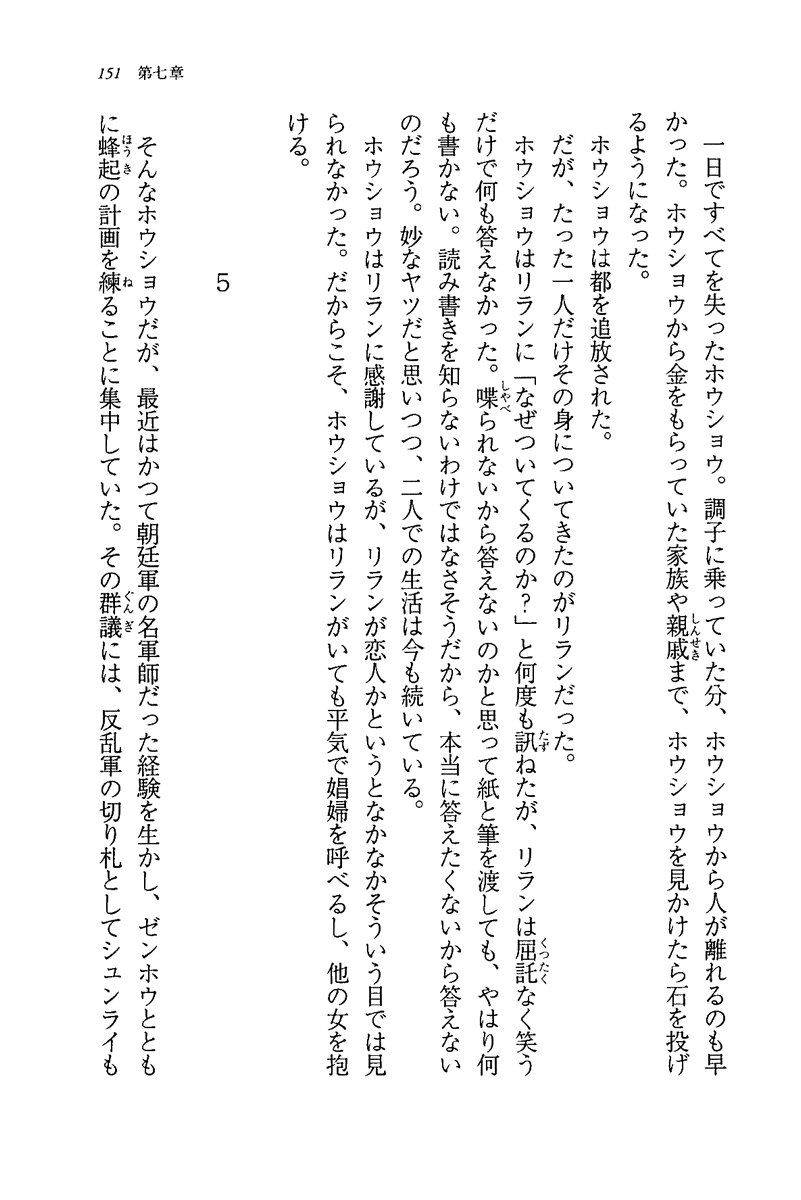 151 第七章
一日ですべてを失ったホウショウ。調子に乗っていた分、ホウショウから人が離れるのも早
かった。ホウショウから金をもらっていた家族や親戚まで、ホウショウを見かけたら石を投げ
るようになった。
ホウショウは都を追放された。
だが、たった一人だけその身についてきたのがリランだった。
ホウショウはリランに「なぜついてくるのか?」と何度も訊ねたが、リランは屈託なく笑う
だけで何も答えなかった。喋られないから答えないのかと思って紙と筆を渡しても、やはり何
も書かない。読み書きを知らないわけではなさそうだから、本当に答えたくないから答えない
のだろう。妙なヤツだと思いつつ、二人での生活は今も続いている。
ホウショウはリランに感謝しているが、リランが恋人かというとなかなかそういう目では見
られなかった。だからこそ、ホウショウはリランがいても平気で娼婦を呼べるし、他の女を抱
ける。
5
そんなホウショウだが、最近はかつて朝廷軍の名軍師だった経験を生かし、ゼンホウととも
に蜂起の計画を練ることに集中していた。その群議には、反乱軍の切り札としてシュンライも